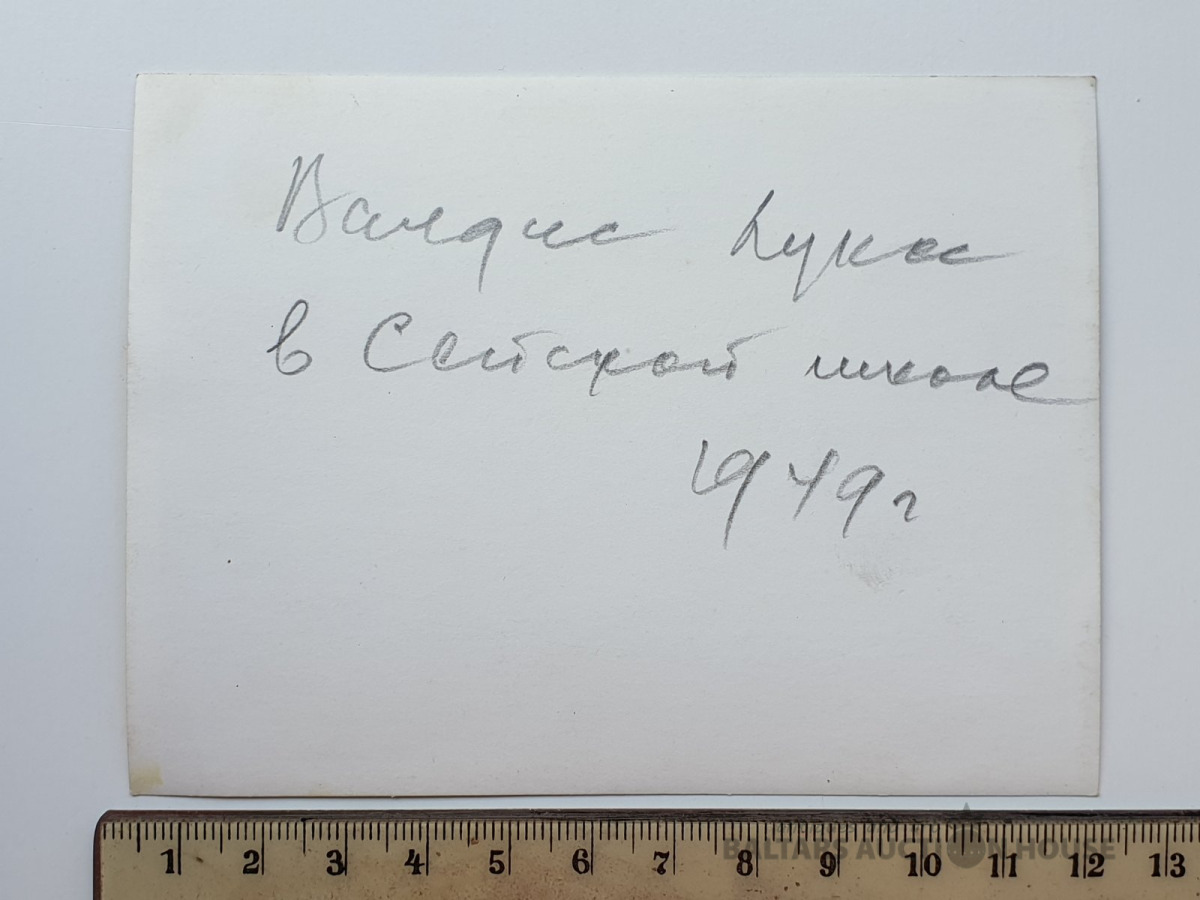 Валдис Лукс
в Сетской школе
1949 г
1 2 3 4 5 6 7 8 9 10 11 12 13
BALTARS AUCTION HOUSE